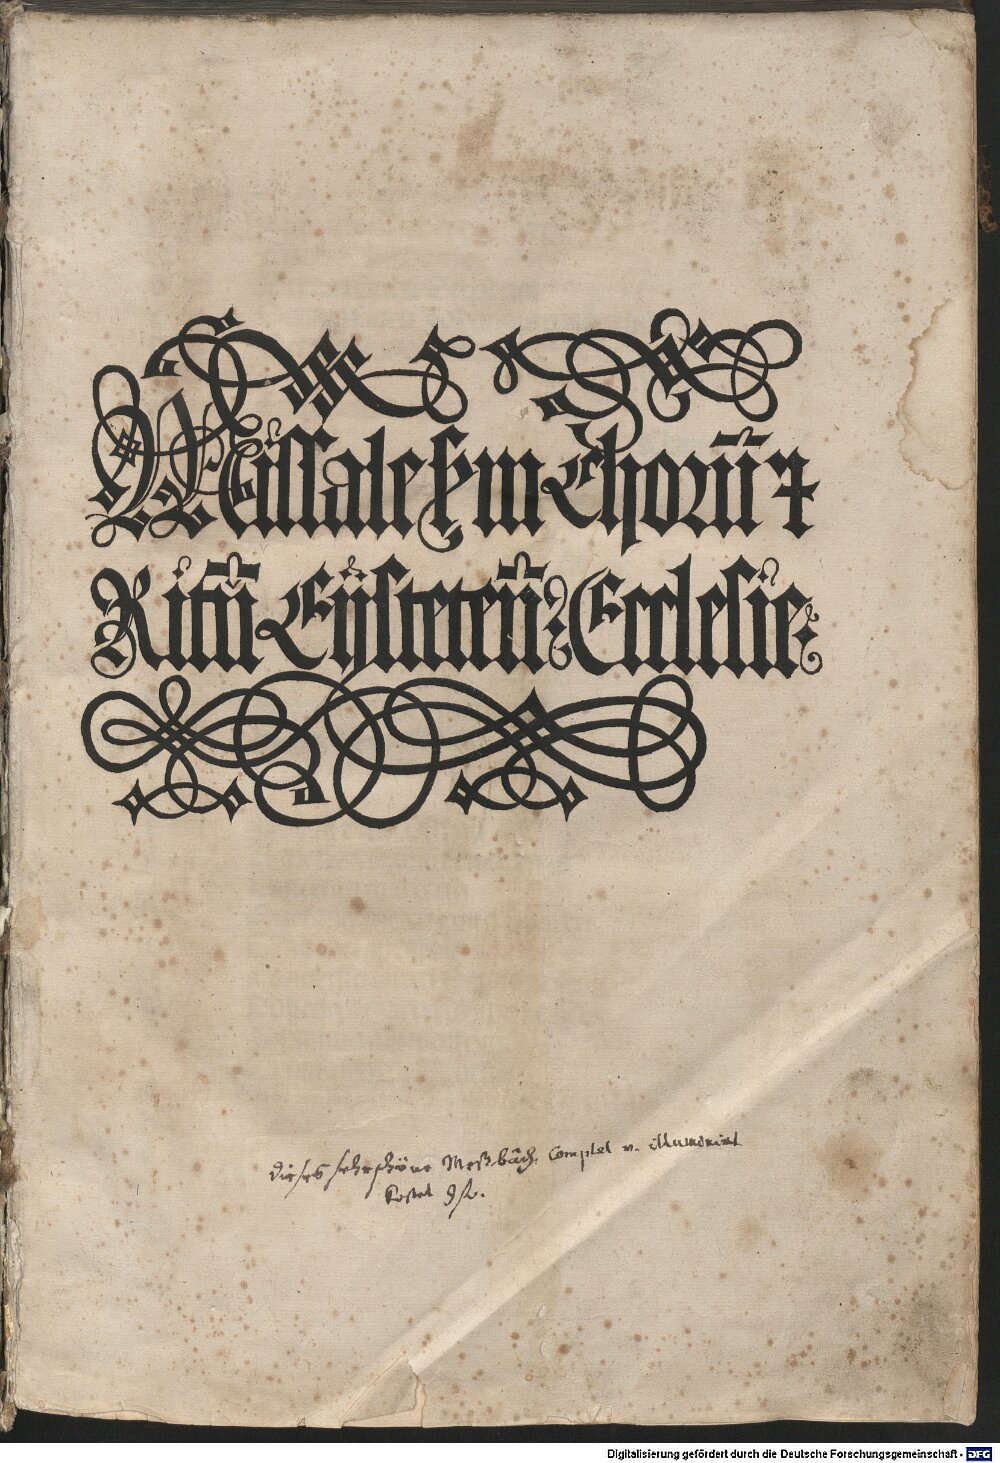 Missale ẜm Chorū ⁊
Ritū Eijstetēn̄ Ecclesie
dieses sehr schöne Meß-buch, Complet u. illuminirt
kostet 9 fl.
Digitalisierung gefördert durch die Deutsche Forschungsgemeinschaft - DFG